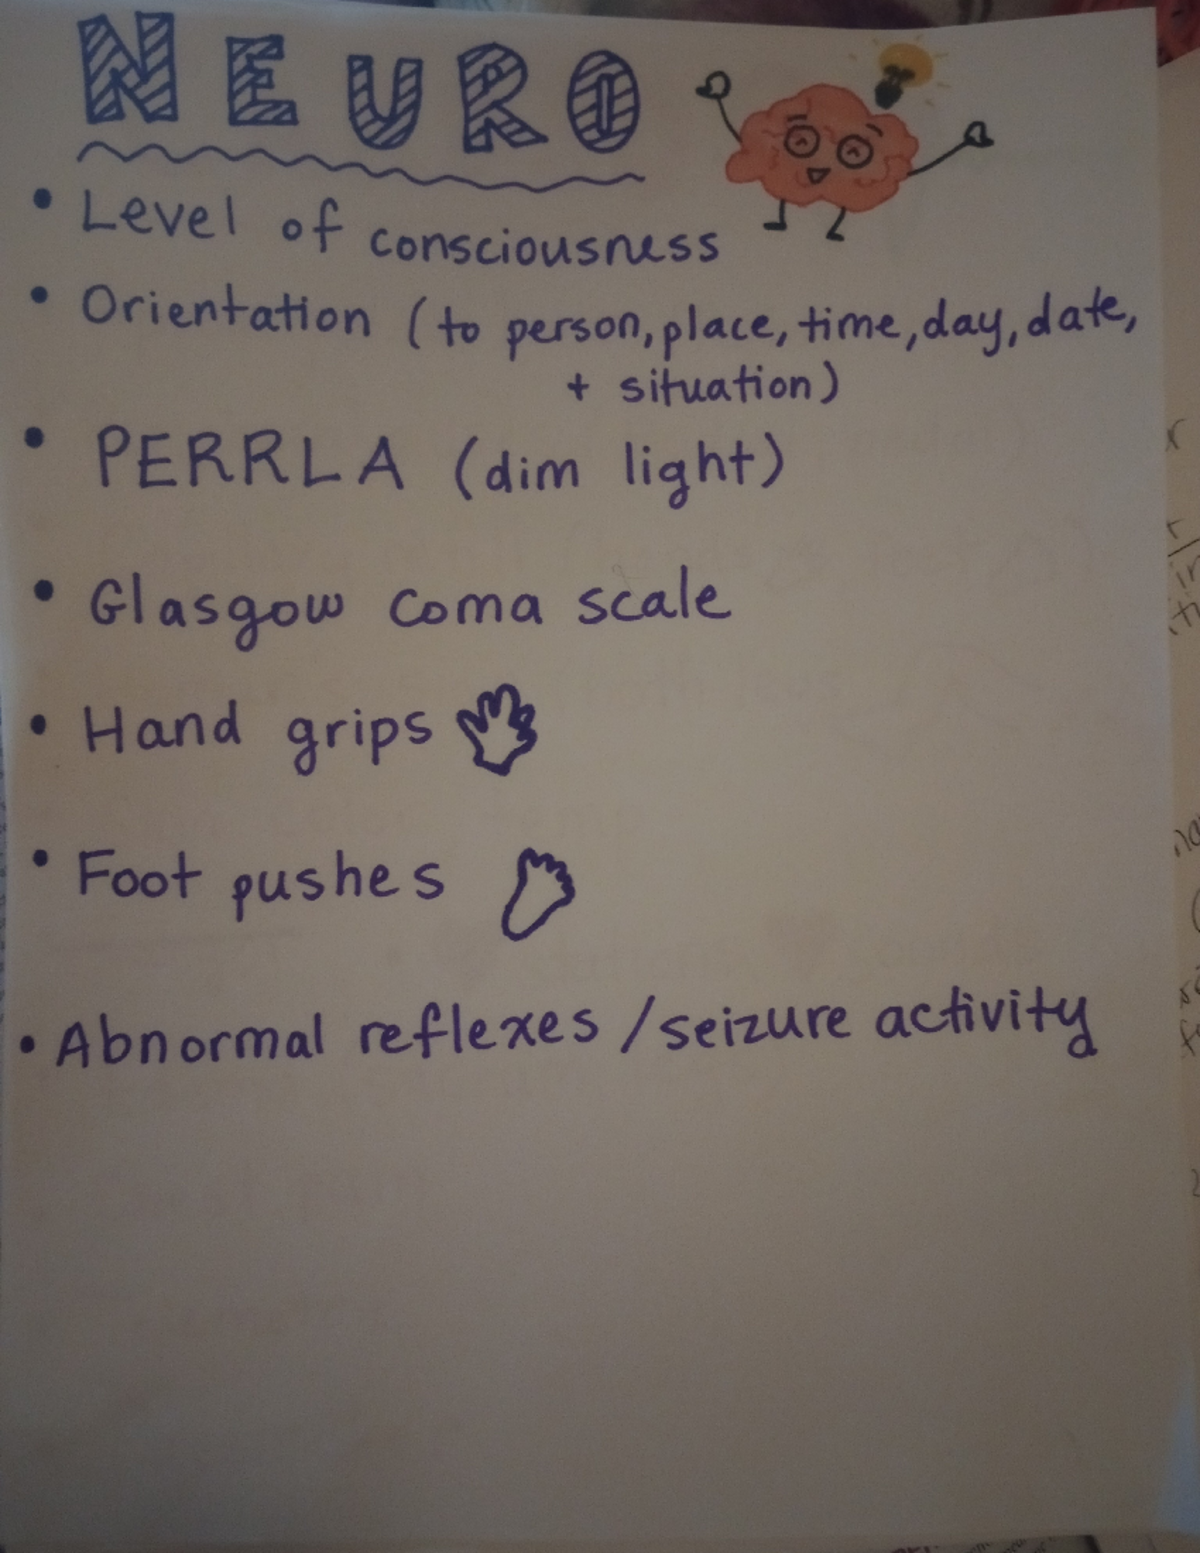 NEURO
• Level of consciousness
• Orientation (to person, place, time, day, date,
+ situation)
• PERRLA (dim light)
• Glasgow coma scale
• Hand grips
• Foot pushes
• Abnormal reflexes / seizure activity